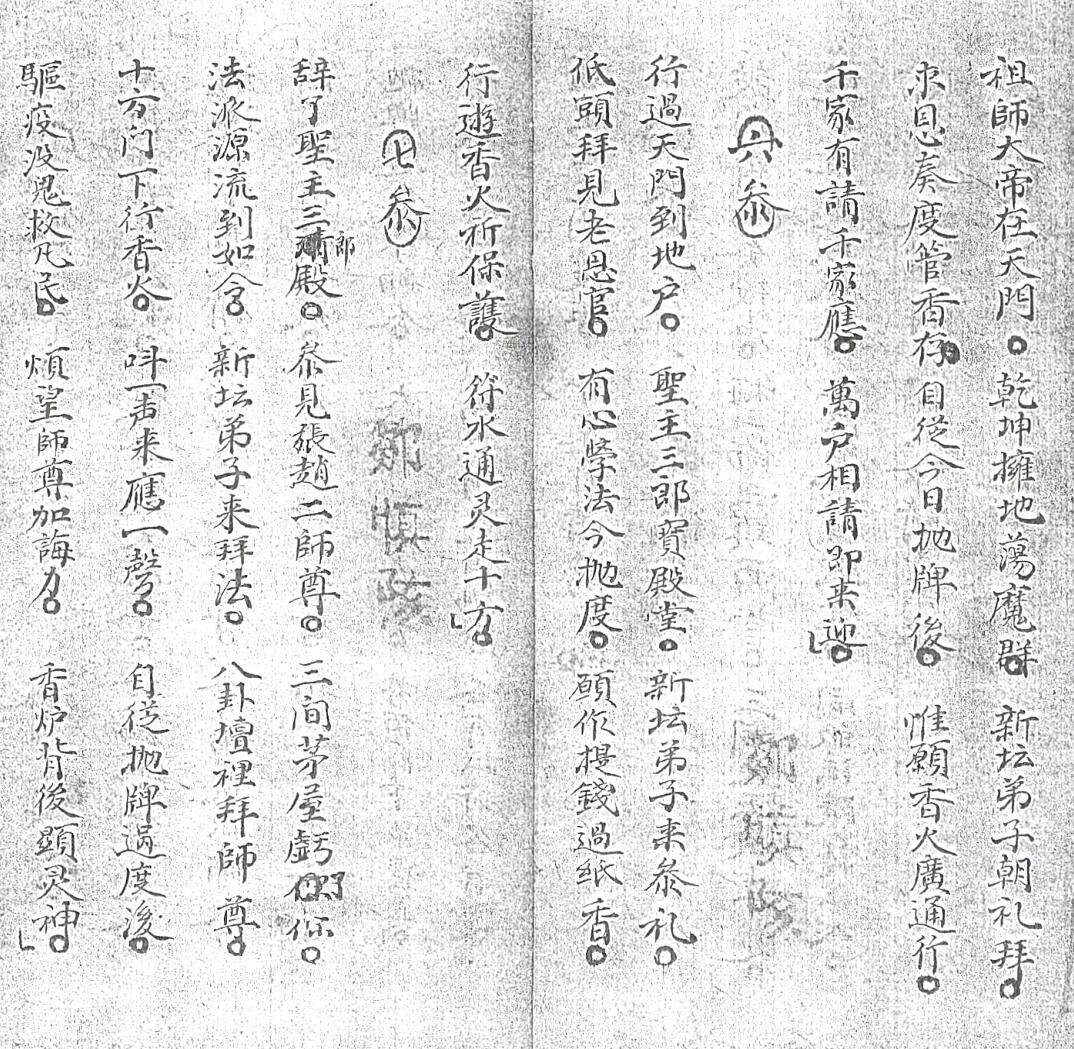 祖師大帝在天門。乾坤擁地蕩魔群。新坛弟子朝礼拜。
求恩奏度管香存。自從今日抛牌後。惟願香火廣通行。
千家有請千家應。萬户相請即来迎。
六叅
行過天門到地户。聖主三郎寳殿堂。新坛弟子来叅礼。
低頭拜見老恩官。有心學法今抛度。願作提錢過紙香。
行遊香火祈保護。符水通灵走十方。
七叅
辞了聖主三郎殿。叅見張趙二師尊。三间茅屋虧了你。
法派源流到如今。新坛弟子来拜法。八卦壇裡拜師尊。
十方门下行香火。呌一声来應一聲。自從抛牌過度後。
驅疫没鬼救凡民。煩望師尊加誨力。香炉背後顕灵神。